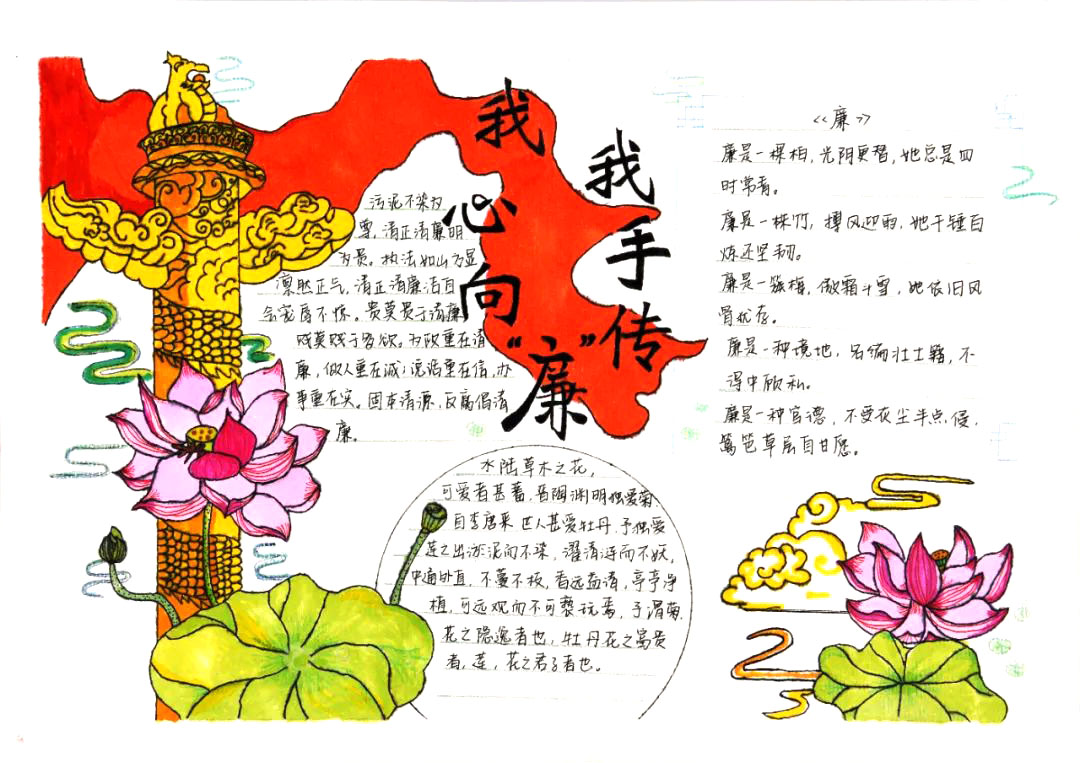 我心向“廉”
我手传
污泥不染为
尊，清正清廉明
为贵。执法如山为显
凛然正气，清正清廉洁自
贵莫贵于清廉
贱莫贱于多欲。为政重在清
廉，做人重在诚；说话重在信，办
事重在实。固本清源，反腐倡清
廉。
水陆草木之花，
可爱者甚蕃，晋陶渊明独爱菊.
自李唐来 世人甚爱牡丹.予独爱
莲之出淤泥而不染，濯清涟而不妖，
中通外直，不蔓不枝，香远益清，亭亭净
植，可远观而不可亵玩焉，予谓菊.
花之隐逸者也，牡丹花之富贵
者，莲，花之君子者也。
《廉》
廉是一棵柏，光阴更替，她总是四
时常青。
廉是一株竹，撑风迎雨，她千锤百
炼还坚韧。
廉是一簇梅，傲霜斗雪，她依旧风
骨犹存。
廉是一种境地，名编壮士籍，不
得中顾私。
廉是一种官德，不受灰尘半点侵，
篱笆草屋自甘愿。